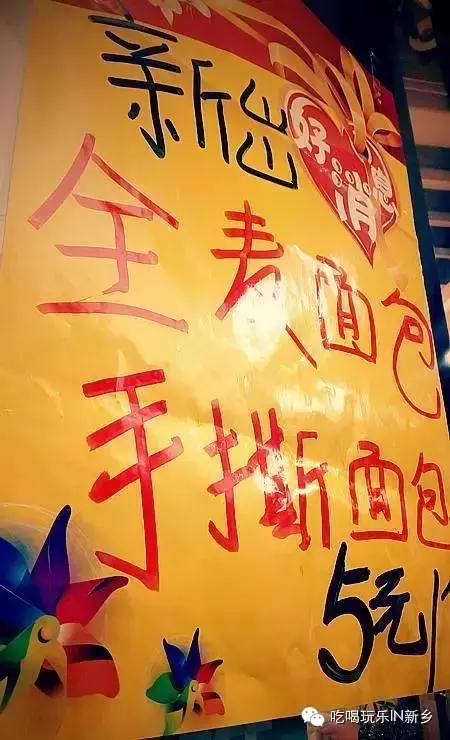 好消息
新出
全麦面包
手撕面包
5元/
吃喝玩乐IN新乡